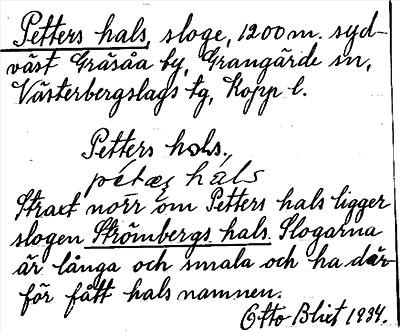 Petters hals, sloge, 1200 m. syd-
väst Gräsåa by, Grangärde sn,
Västerbergslags tg, Kopp l.
Petters hals.
Straxt norr om Petters hals ligger
slogen Strömbergs hals. Slogarna
är långa och smala och ha där-
för fått hals namnen.
Otto Blixt 1934.